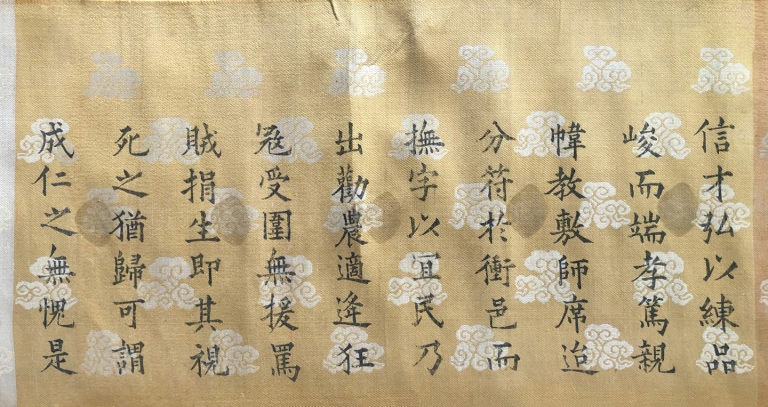 信才弘以練品
峻而端孝篤親
幃教敷師席迨
分符於衝邑而
撫字以冝民乃
出勸農適逄狂
冦受圍無援罵
賊捐生即其視
死之猶歸可謂
成仁之無愧是